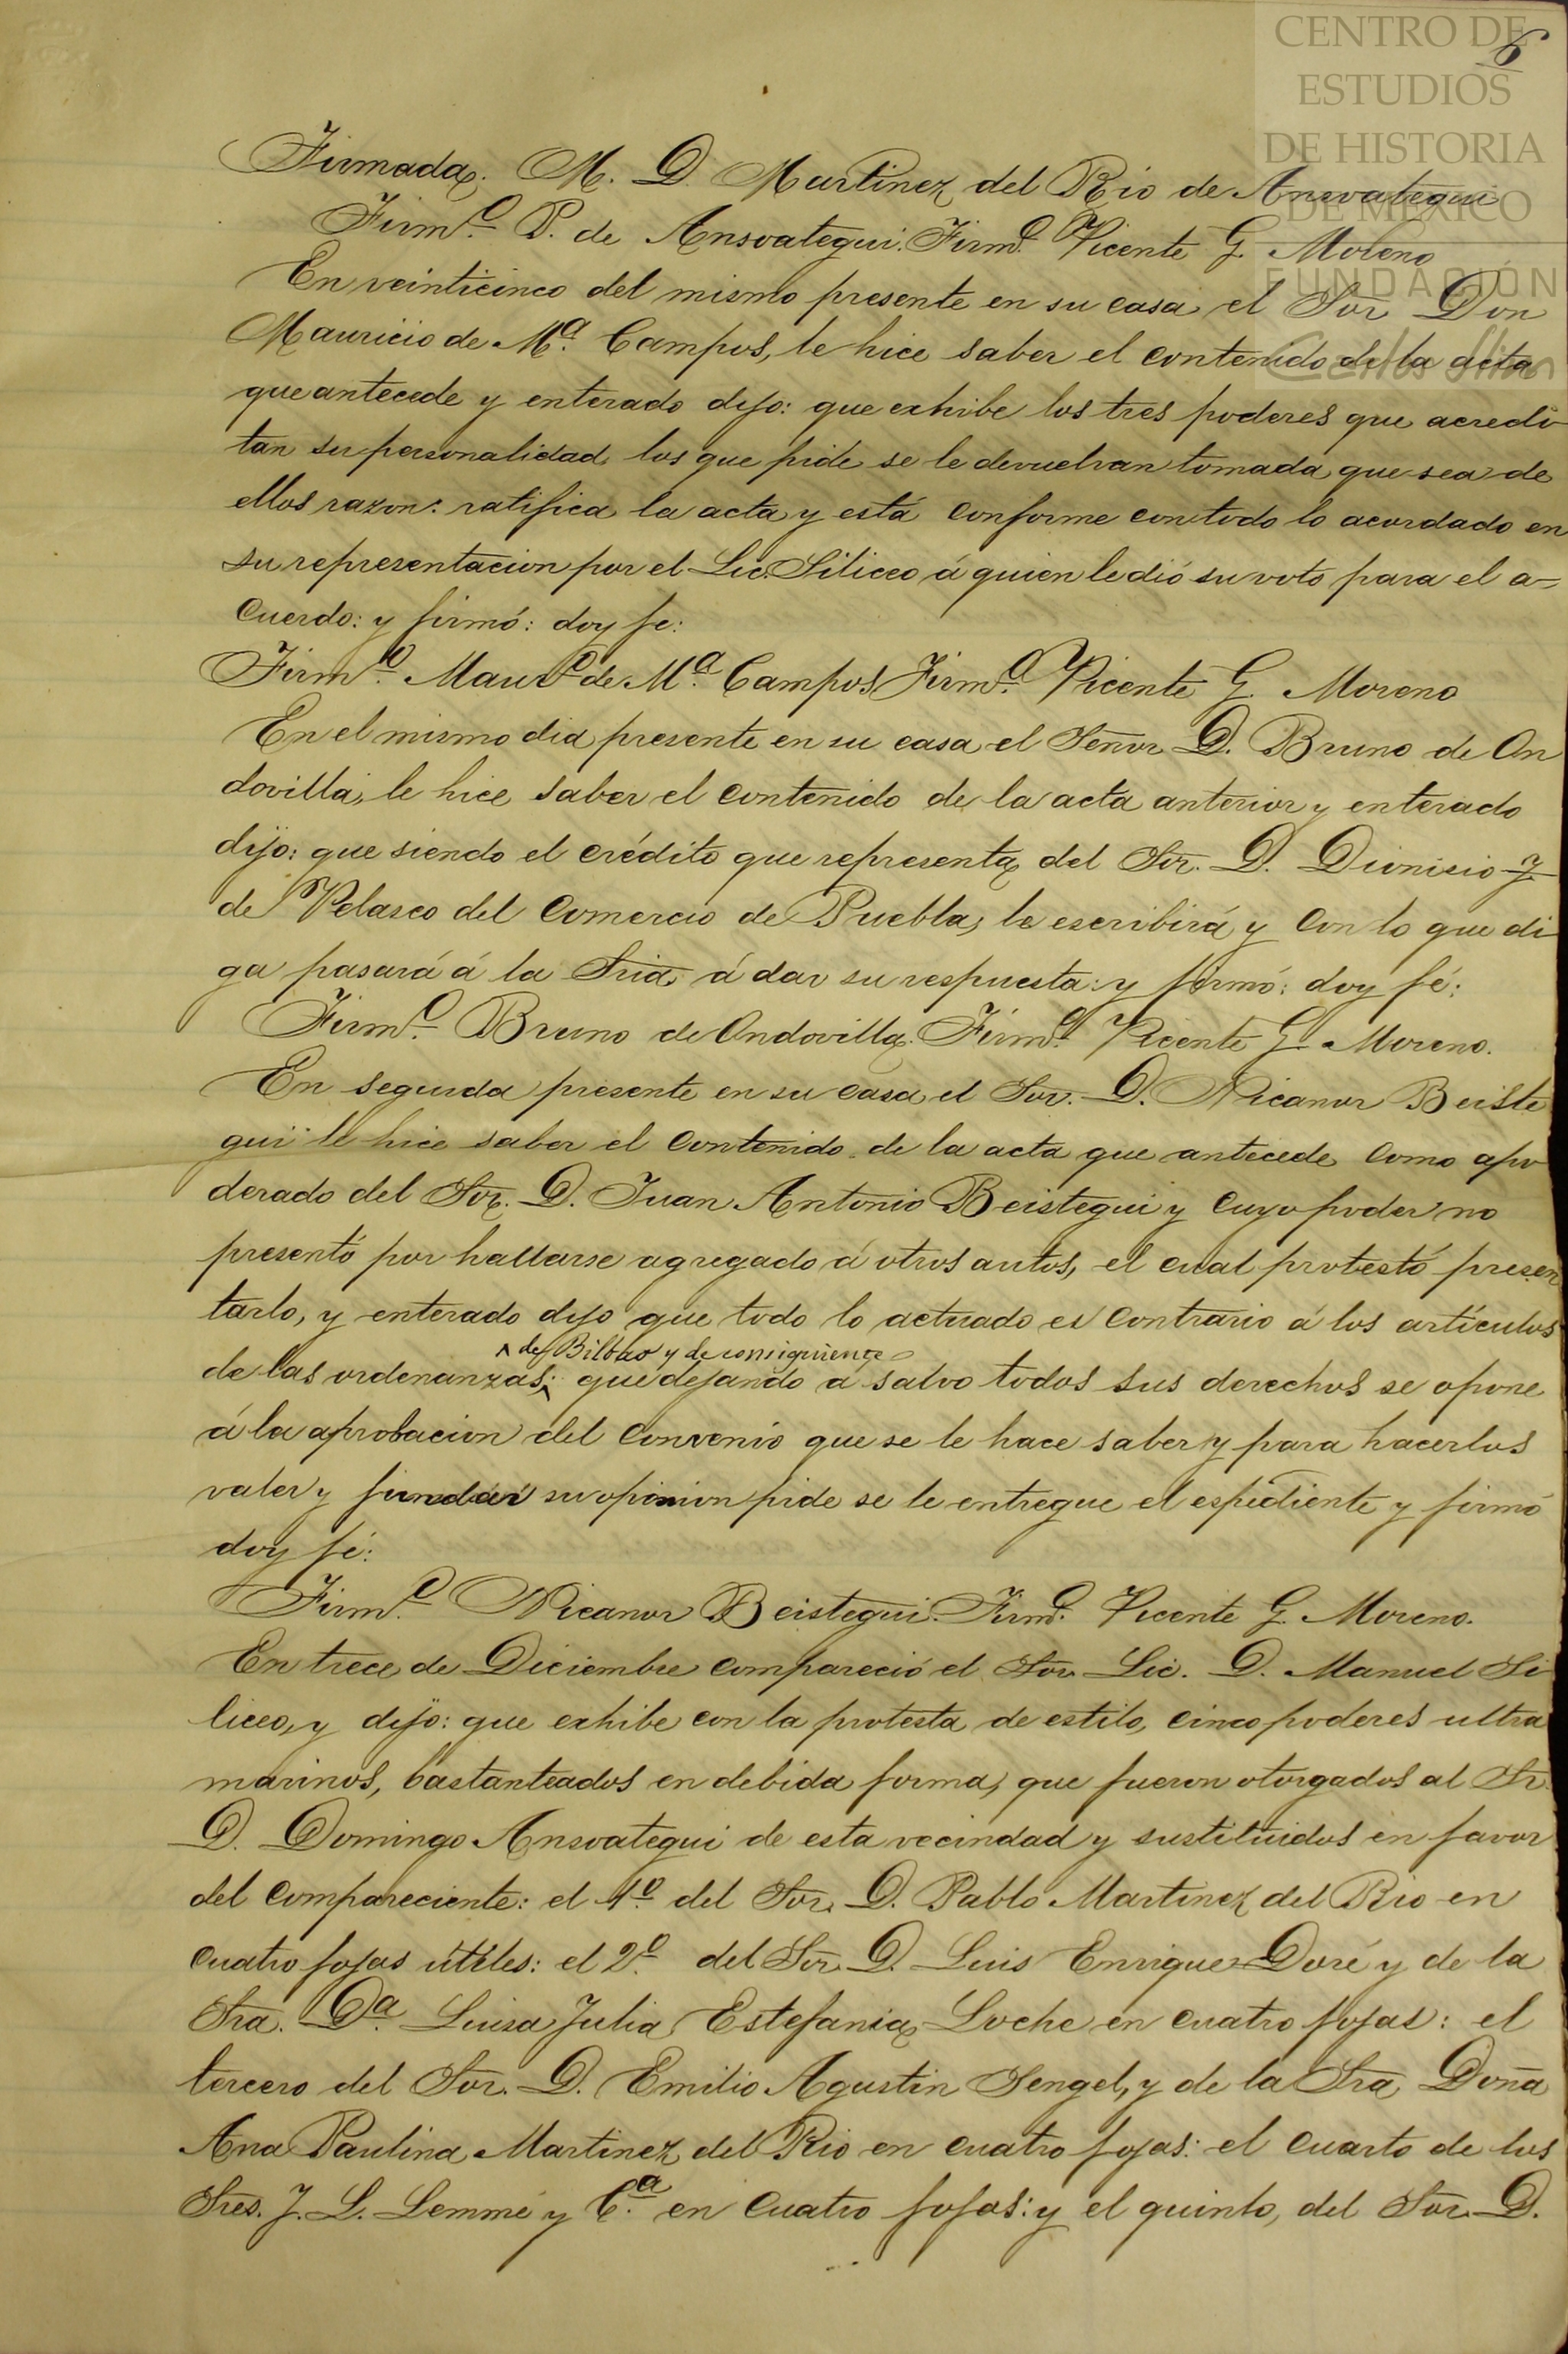 CENTRO DE
ESTUDIOS
DE HISTORIA
DE MÉXICO
FUNDACIÓN
Carlos Slim
6
Firmada. M. D. Martinez del Rio de Ansoategui
Firmo. P. de Ansoategui. Firmo. Vicente G. Moreno
En veinticinco del mismo presente en su casa el Sor Don
Mauricio de Ma. Campos, le hice saber el contenido de la acta
que antecede y enterado dijo: que exhibe los tres poderes que acredi
tan su personalidad los que pide se le devuelvan tomada que sea de
ellos razon: ratifica la acta y está conforme con todo lo acordado en
su representacion por el Lic. Siliceo á quien le dió su voto para el a=
cuerdo: y firmó: doy fe:
Firmo. Mauro. de Ma. Campos Firmo. Vicente G. Moreno
En el mismo dia presente en su casa el Señor D. Bruno de On
dovilla, le hice saber el contenido de la acta anterior y enterado
dijo: que siendo el crédito que representa del Sor. D. Dionisio J.
de Velasco del Comercio de Puebla, le escribirá y con lo que di
ga pasará á la Sria. á dar su respuesta: y firmó: doy fé:
Firmo. Bruno de Ondovilla. Firmo. Vicente G. Moreno.
En seguida presente en su casa el Sor. D. Nicanor Beiste
gui le hice saber el contenido de la acta que antecede como apo
derado del Sor. D. Juan Antonio Beistegui y cuyo poder no
presentó por hallarse agregado á otros autos, el cual protestó presen
tarlo, y enterado dijo que todo lo actuado es contrario á los artículos
de Bilbao y de consiguiente
de las ordenanzas: que dejando á salvo todos sus derechos se opone
á la aprobacion del convenio que se le hace saber y para hacerlos
valer y fundar su opinion pide se le entregue el espediente y firmó
doy fé:
Firmo. Nicanor Beistegui. Firmo. Vicente G. Moreno.
En trece de Diciembre compareció el Sor Lic. D. Manuel Si
liceo, y dijo: que exhibe con la protesta de estilo, cinco poderes ultra
marinos, bastanteados en debida forma, que fueron otorgados al Sr.
D. Domingo Ansoategui de esta vecindad y sustituidos en favor
del compareciente: el 1o. del Sor. D. Pablo Martinez del Rio en
cuatro fojas útiles: el 2o. del Sor. D. Luis Enrique Doré y de la
Sra. Da. Luisa Julia Estefania Loche en cuatro fojas: el
tercero del Sor. D. Emilio Agustin Sengel, y de la Sra. Doña
Ana Paulina Martinez del Rio en cuatro fojas: el cuarto de los
Sres. J. L. Lemmé y Ca. en cuatro fojas: y el quinto, del Sor. D.